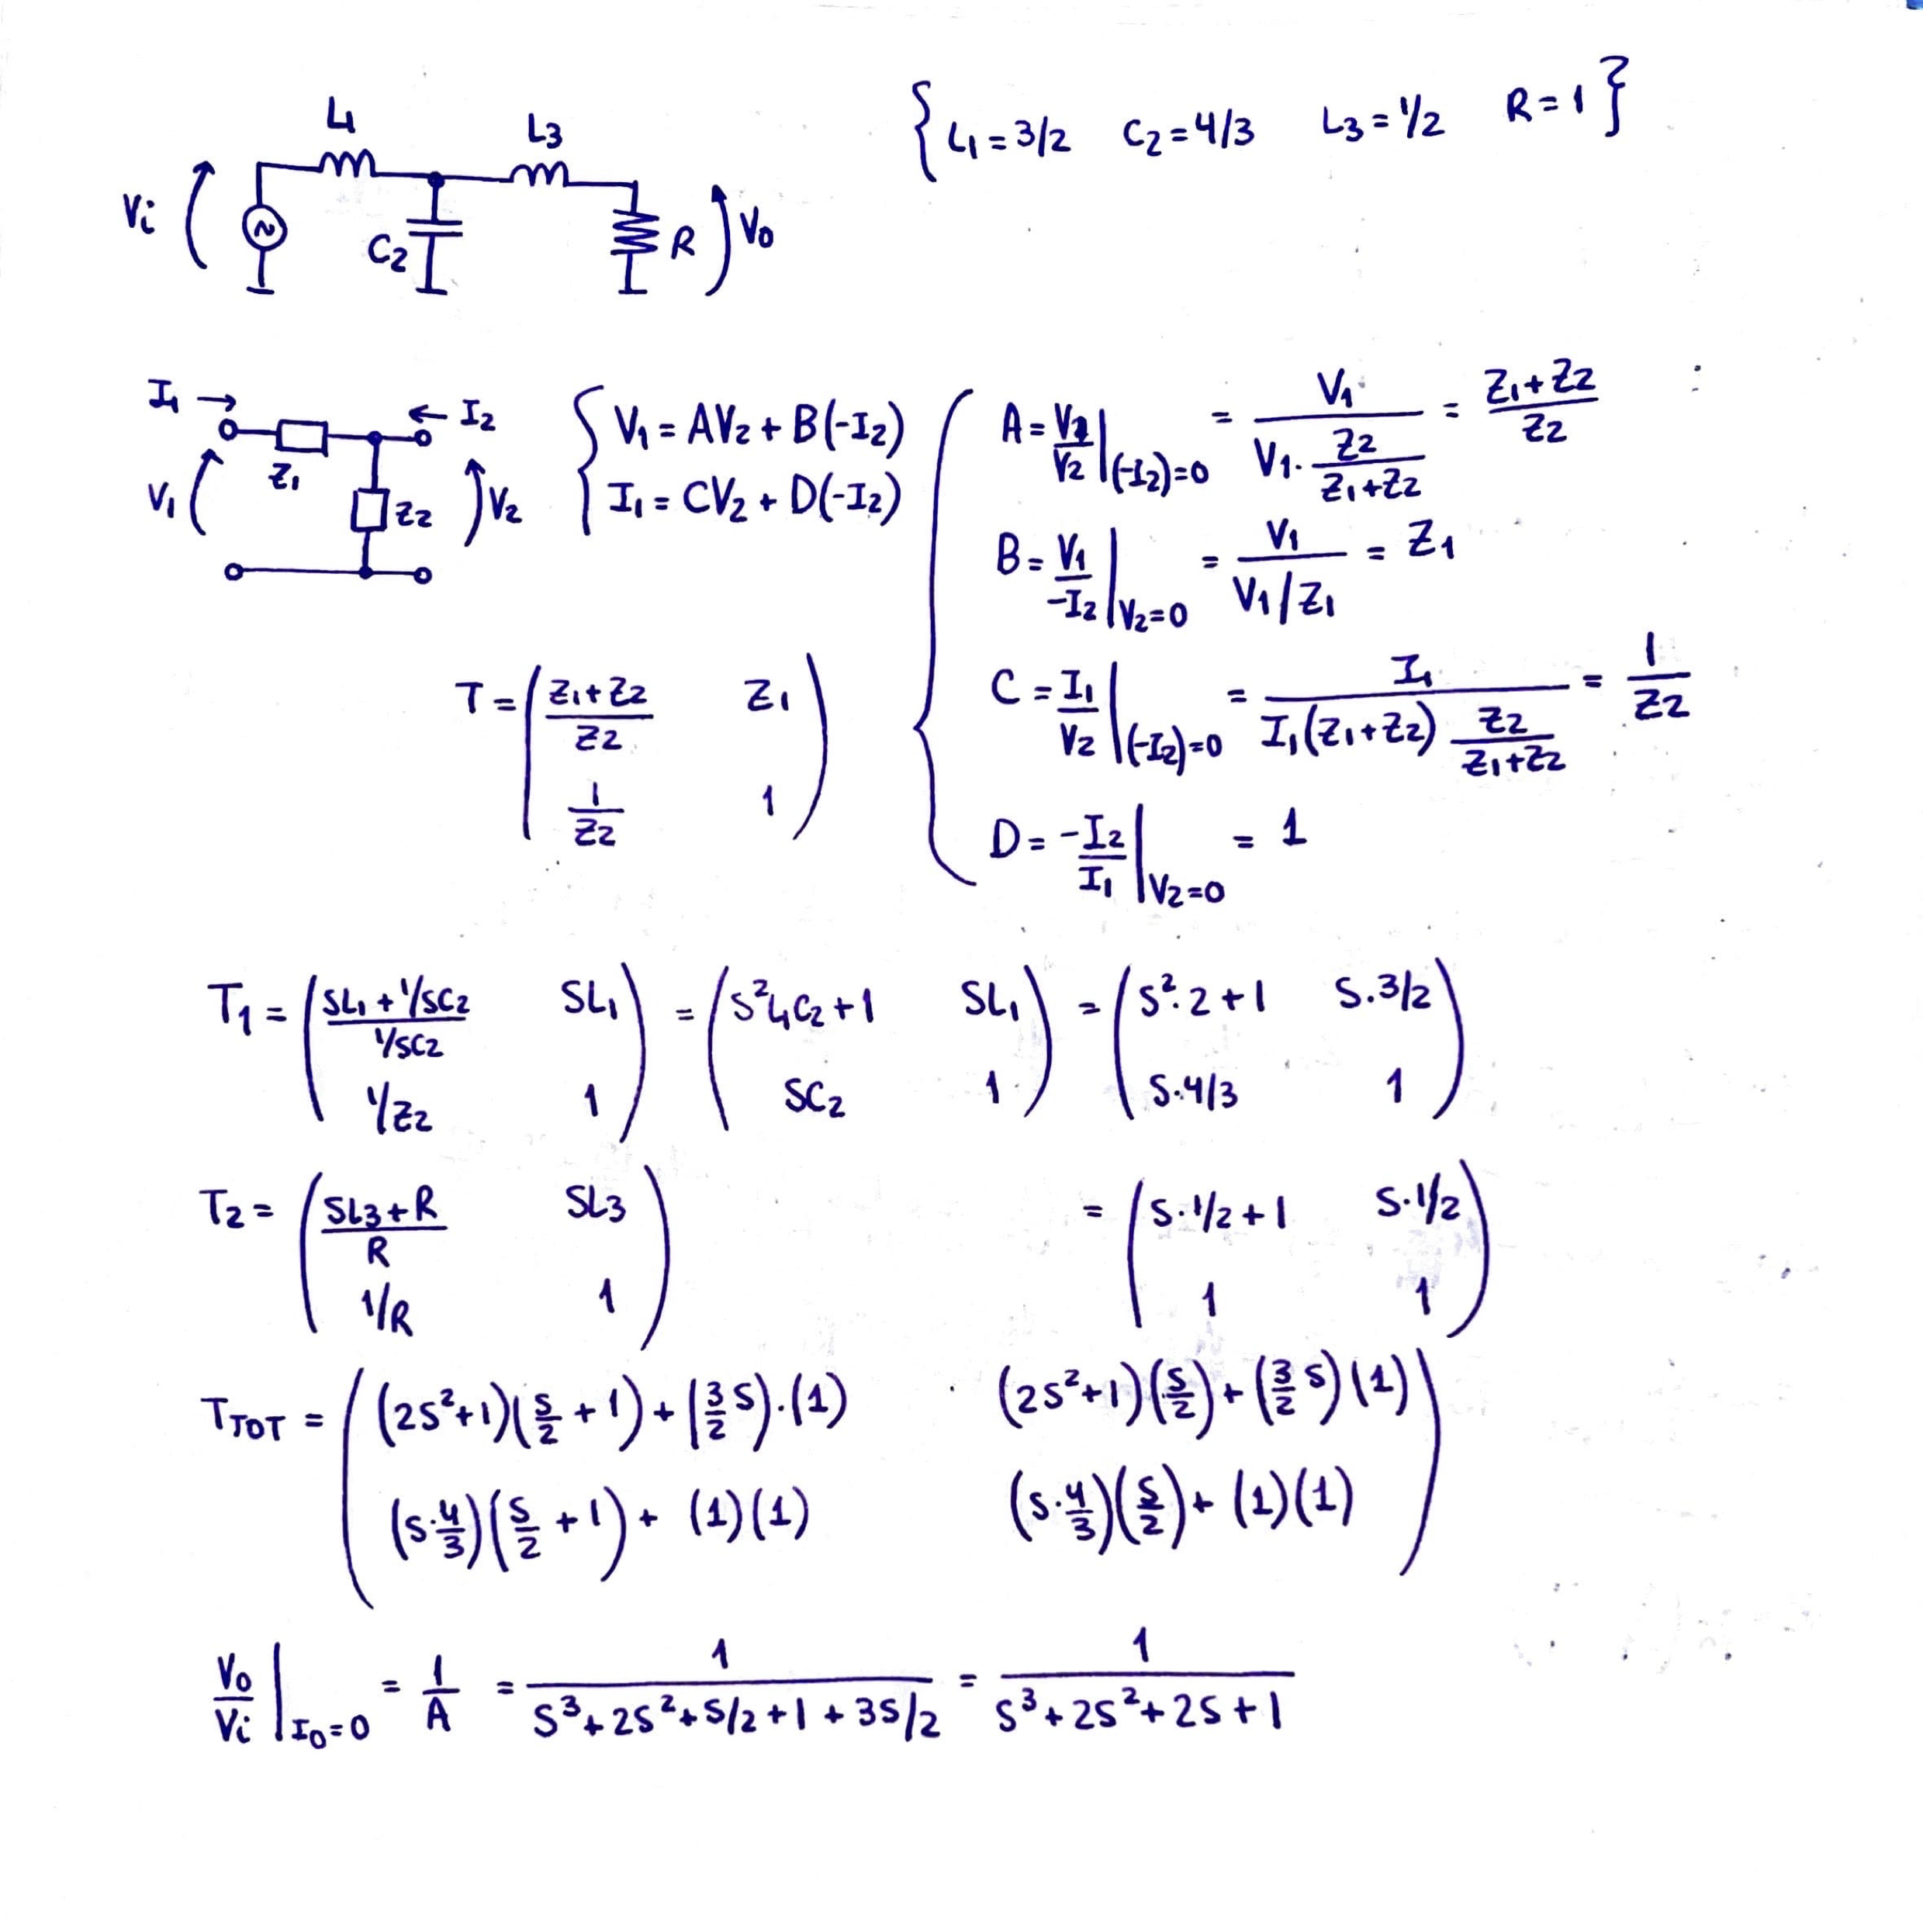 L1 L3 { L1 = 3/2 C2 = 4/3 L3 = 1/2 R = 1 }
Vi ~ C2 R Vo
I1 → ← I2
V1 Z1 Z2 V2
{ V1 = AV2 + B(-I2)
I1 = CV2 + D(-I2)
A = V1/V2 |(-I2)=0 = V1 / (V1 · Z2/(Z1+Z2)) = (Z1+Z2)/Z2
B = V1/-I2 |V2=0 = V1 / (V1/Z1) = Z1
C = I1/V2 |(-I2)=0 = I1 / (I1(Z1+Z2) Z2/(Z1+Z2)) = 1/Z2
D = -I2/I1 |V2=0 = 1
T = ( (Z1+Z2)/Z2 Z1
1/Z2 1 )
T1 = ( (SL1 + 1/SC2)/(1/SC2) SL1 ) = ( S²L1C2 + 1 SL1 ) = ( S²·2 + 1 S·3/2 )
( 1/Z2 1 ) ( SC2 1 ) ( S·4/3 1 )
T2 = ( (SL3 + R)/R SL3 ) = ( S·1/2 + 1 S·1/2 )
( 1/R 1 ) ( 1 1 )
TTOT = ( (2S²+1)(S/2 + 1) + (3/2 S)·(1) (2S²+1)(S/2) + (3/2 S)(1) )
( (S·4/3)(S/2 + 1) + (1)(1) (S·4/3)(S/2) + (1)(1) )
Vo/Vi |Io=0 = 1/A = 1/(S³ + 2S² + S/2 + 1 + 3S/2) = 1/(S³ + 2S² + 2S + 1)